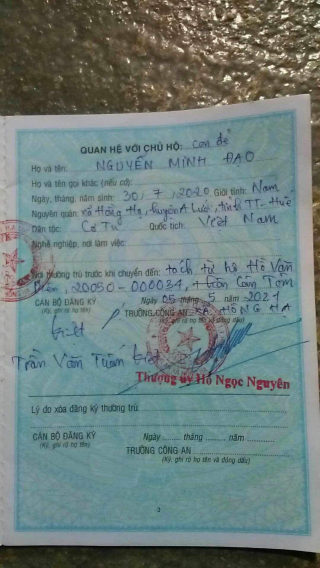 QUAN HỆ VỚI CHỦ HỘ: con đẻ
Họ và tên: NGUYỄN MINH ĐẠO
Họ và tên gọi khác (nếu có):
Ngày, tháng, năm sinh: 30/7/2020 Giới tính: Nam
Nguyên quán: xã Hồng Hạ, huyện A Lưới, tỉnh TT-Huế
Dân tộc: Cơ Tu Quốc tịch: Việt Nam
Nghề nghiệp, nơi làm việc:
Nơi thường trú trước khi chuyển đến: tách từ hộ Hồ Văn
20050-000034, thôn Cân Tôm
CÁN BỘ ĐĂNG KÝ Ngày 05 tháng 5 năm 2021
(Ký, ghi rõ họ tên) TRƯỞNG CÔNG AN XÃ HỒNG HẠ
Trần Văn Tuấn Kiệt
Thượng úy Hồ Ngọc Nguyên
Lý do xóa đăng ký thường trú:
CÁN BỘ ĐĂNG KÝ Ngày ........ tháng ........ năm ........
(Ký, ghi rõ họ tên) TRƯỞNG CÔNG AN
(Ký, ghi rõ họ tên và đóng dấu)
3